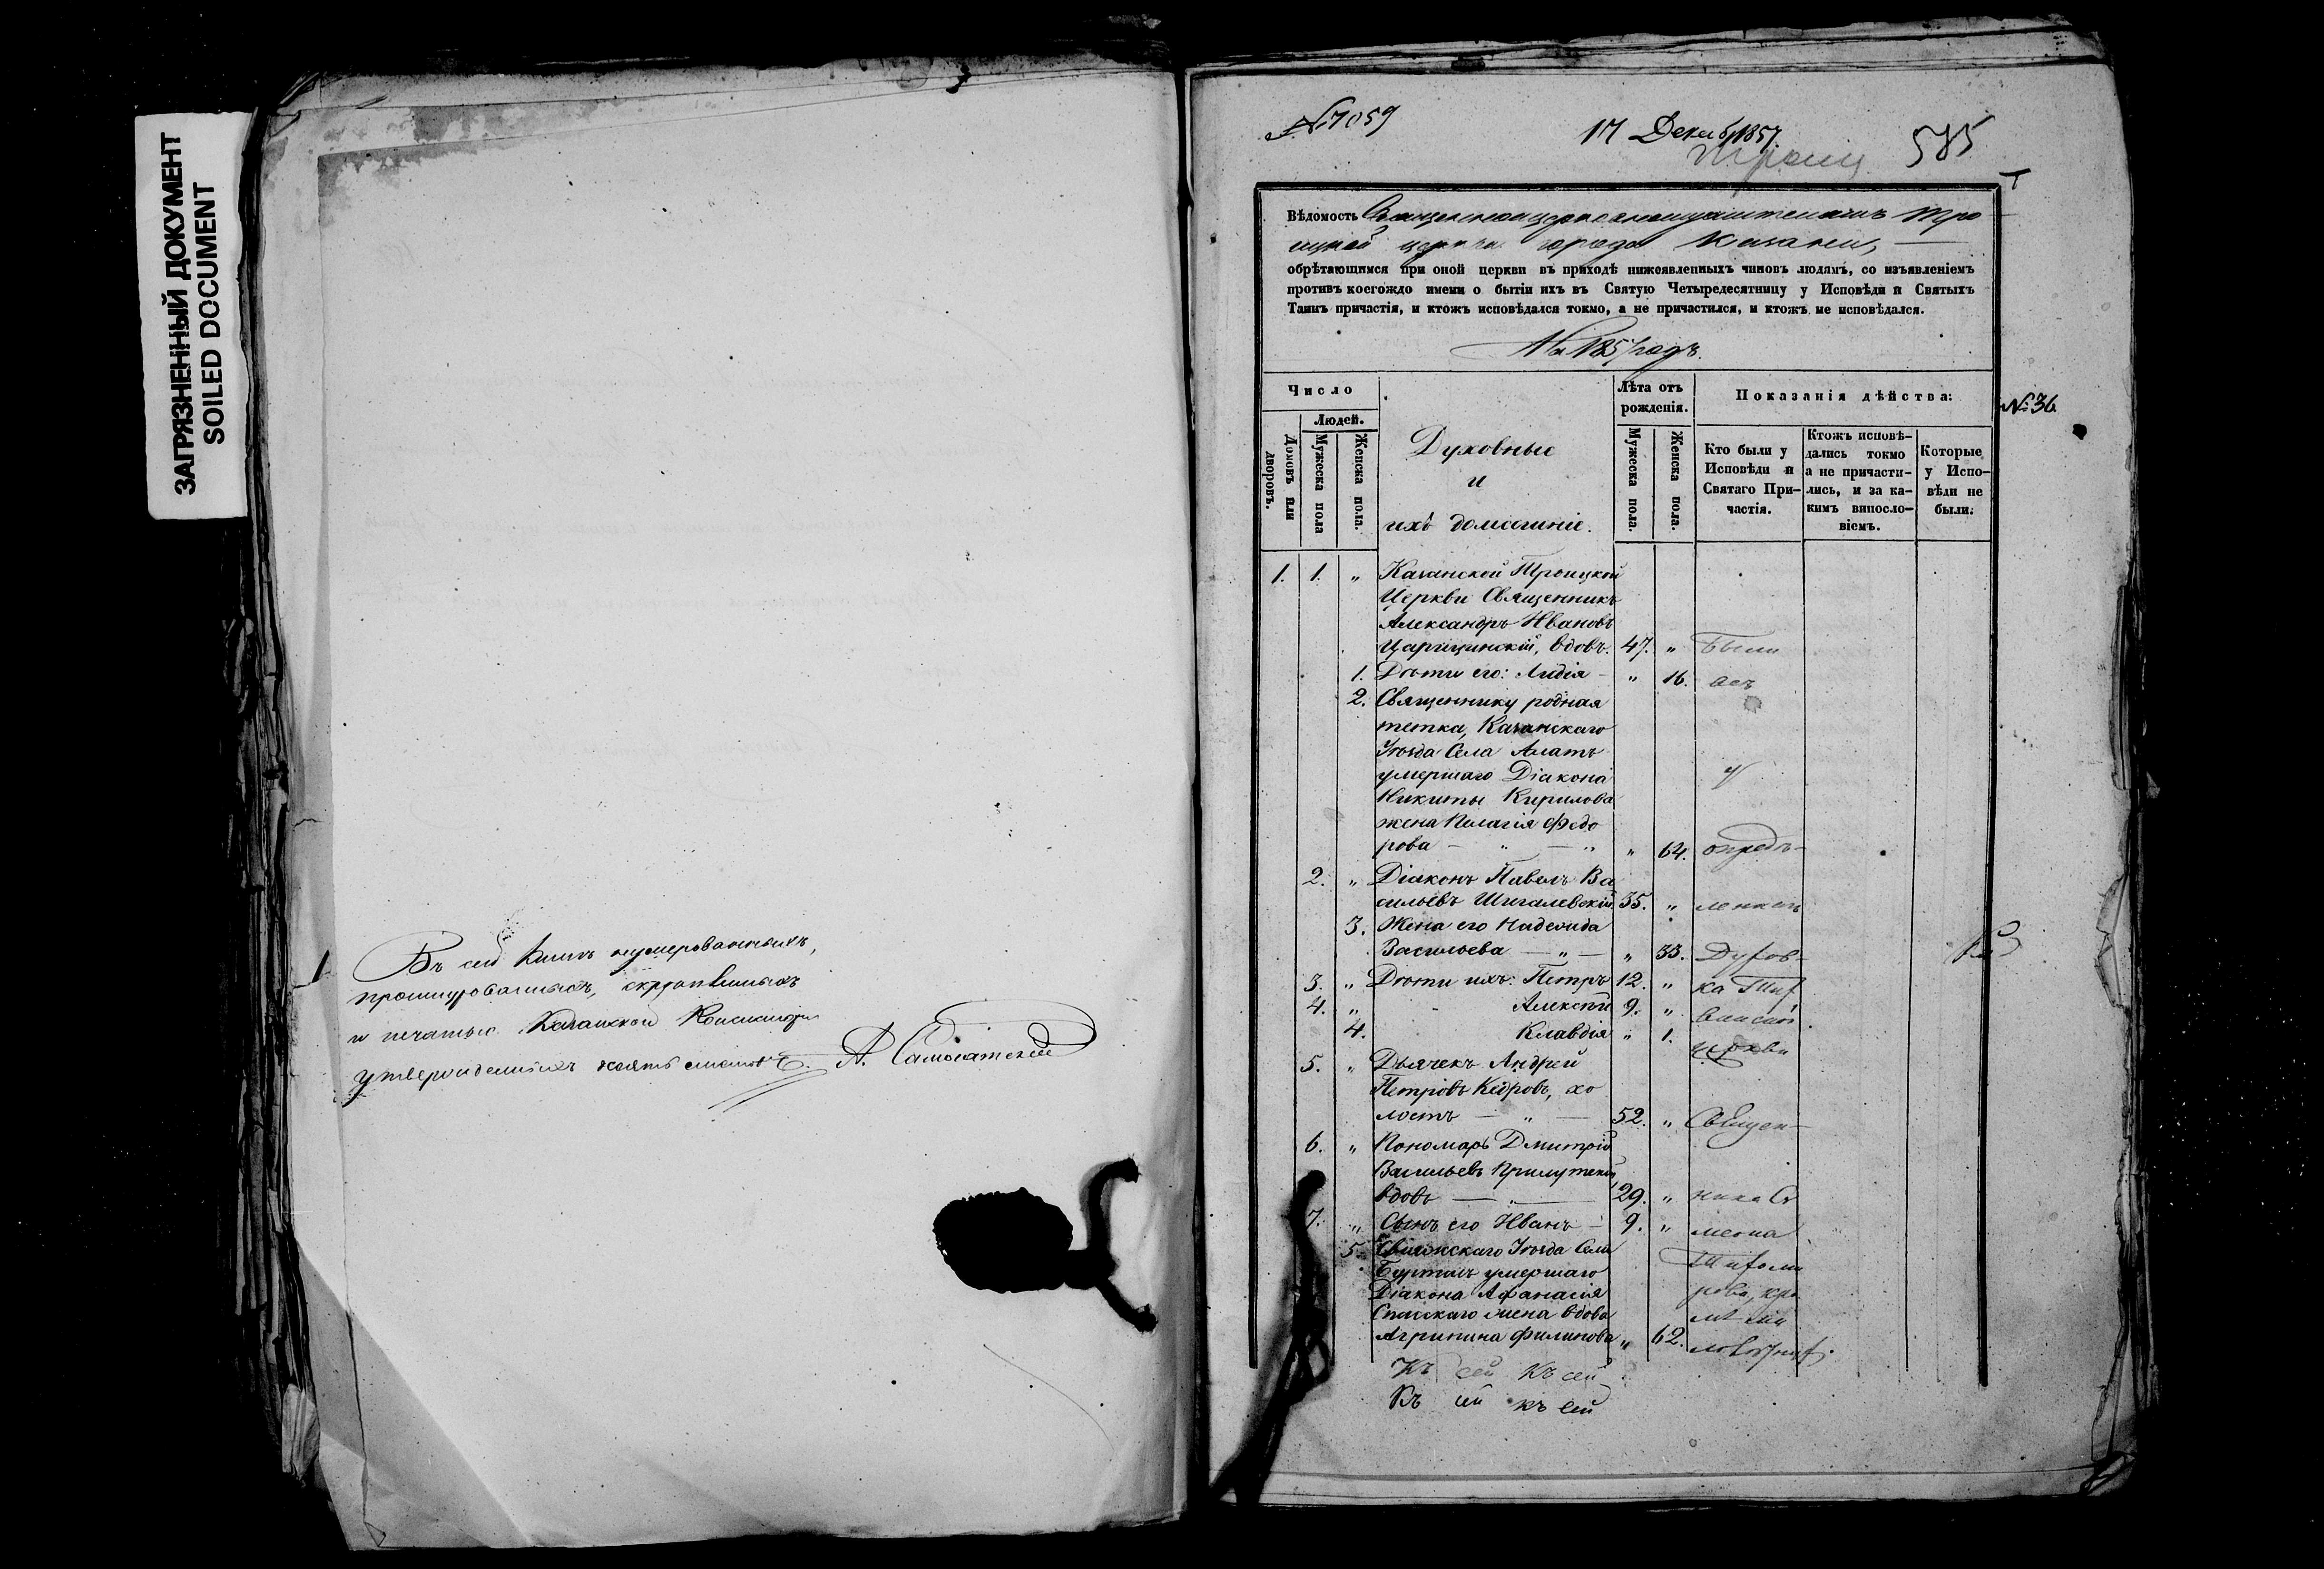 ЗАГРЯЗНЕННЫЙ ДОКУМЕНТ
SOILED DOCUMENT
Въ сей книгѣ нумерованныхъ,
прошнурованныхъ, скрѣпленныхъ
и печатью Казанской Консисторіи
утвержденныхъ листовъ
№7059
17 Декаб, 1857.
Троиц
585
Вѣдомость Тро
ицкой церкви города Казани,
обрѣтающимся при оной церкви въ приходѣ нижеявленныхъ чиновъ людямъ, со изъявленіемъ
противъ коегождо имени о бытіи ихъ въ Святую Четыредесятницу у Исповѣди и Святыхъ
Таинъ причастія, и ктожъ исповѣдался токмо, а не причастился, и ктожъ не исповѣдался.
На 1857 годъ.
№ 36
Число
Людей.
Домовъ или дворовъ.
Мужеска пола
Женска пола.
Духовные
и
ихъ домашніе.
Лѣта отъ
рожденія.
Мужеска пола.
Женска пола.
Показанія дѣйства:
Кто были у
Исповѣди и
Святаго При-
частія.
Ктожъ исповѣ-
дались токмо
а не причасти-
лись, и за ка-
кимъ винословіемъ.
Которые
у Испо-
вѣди не
были.
1. 1. „ Казанской Троицкой
Церкви Священникъ
Александръ Ивановъ
Царицинскій, вдовъ. 47. „ Были
1. Дѣти его: Лидія – „ 16. всѣ
2. Священнику родная
тетка, Казанскаго
Уѣзда Села Алатъ
умершаго Діакона у
Никиты Кирилова
жена Пелагія Федо
рова – „ – „ „ 64. опредѣ-
2. „ Діаконъ Павелъ Ва
сильевъ Шигалевскій 35. „
3. Жена его Надежда
Васильева – „ – „ 33. Духов-
3. „ Дѣти ихъ: Петръ 12. „ ка Тих
4. „ Алексѣй 9. „ винской
4. Клавдія „ 1. церкви
5. „ Дьячекъ Андрей
Петровъ Кедровъ, хо
лостъ – „ – 52. „ Священ-
6. „ Пономарь Дмитрій
Васильевъ
вдовъ – „ – 29. „ ника Си
7. „ Сынъ его Иванъ – 9. „ меона
5. Свіяжскаго Уѣзда Села
Буртасъ умершаго Тихоми
Діакона Афанасія рова, кро
Спасскаго жена вдова мѣ
Агрипина Филипова „ 62.
Къ сей Къ сей
Къ сей къ сей